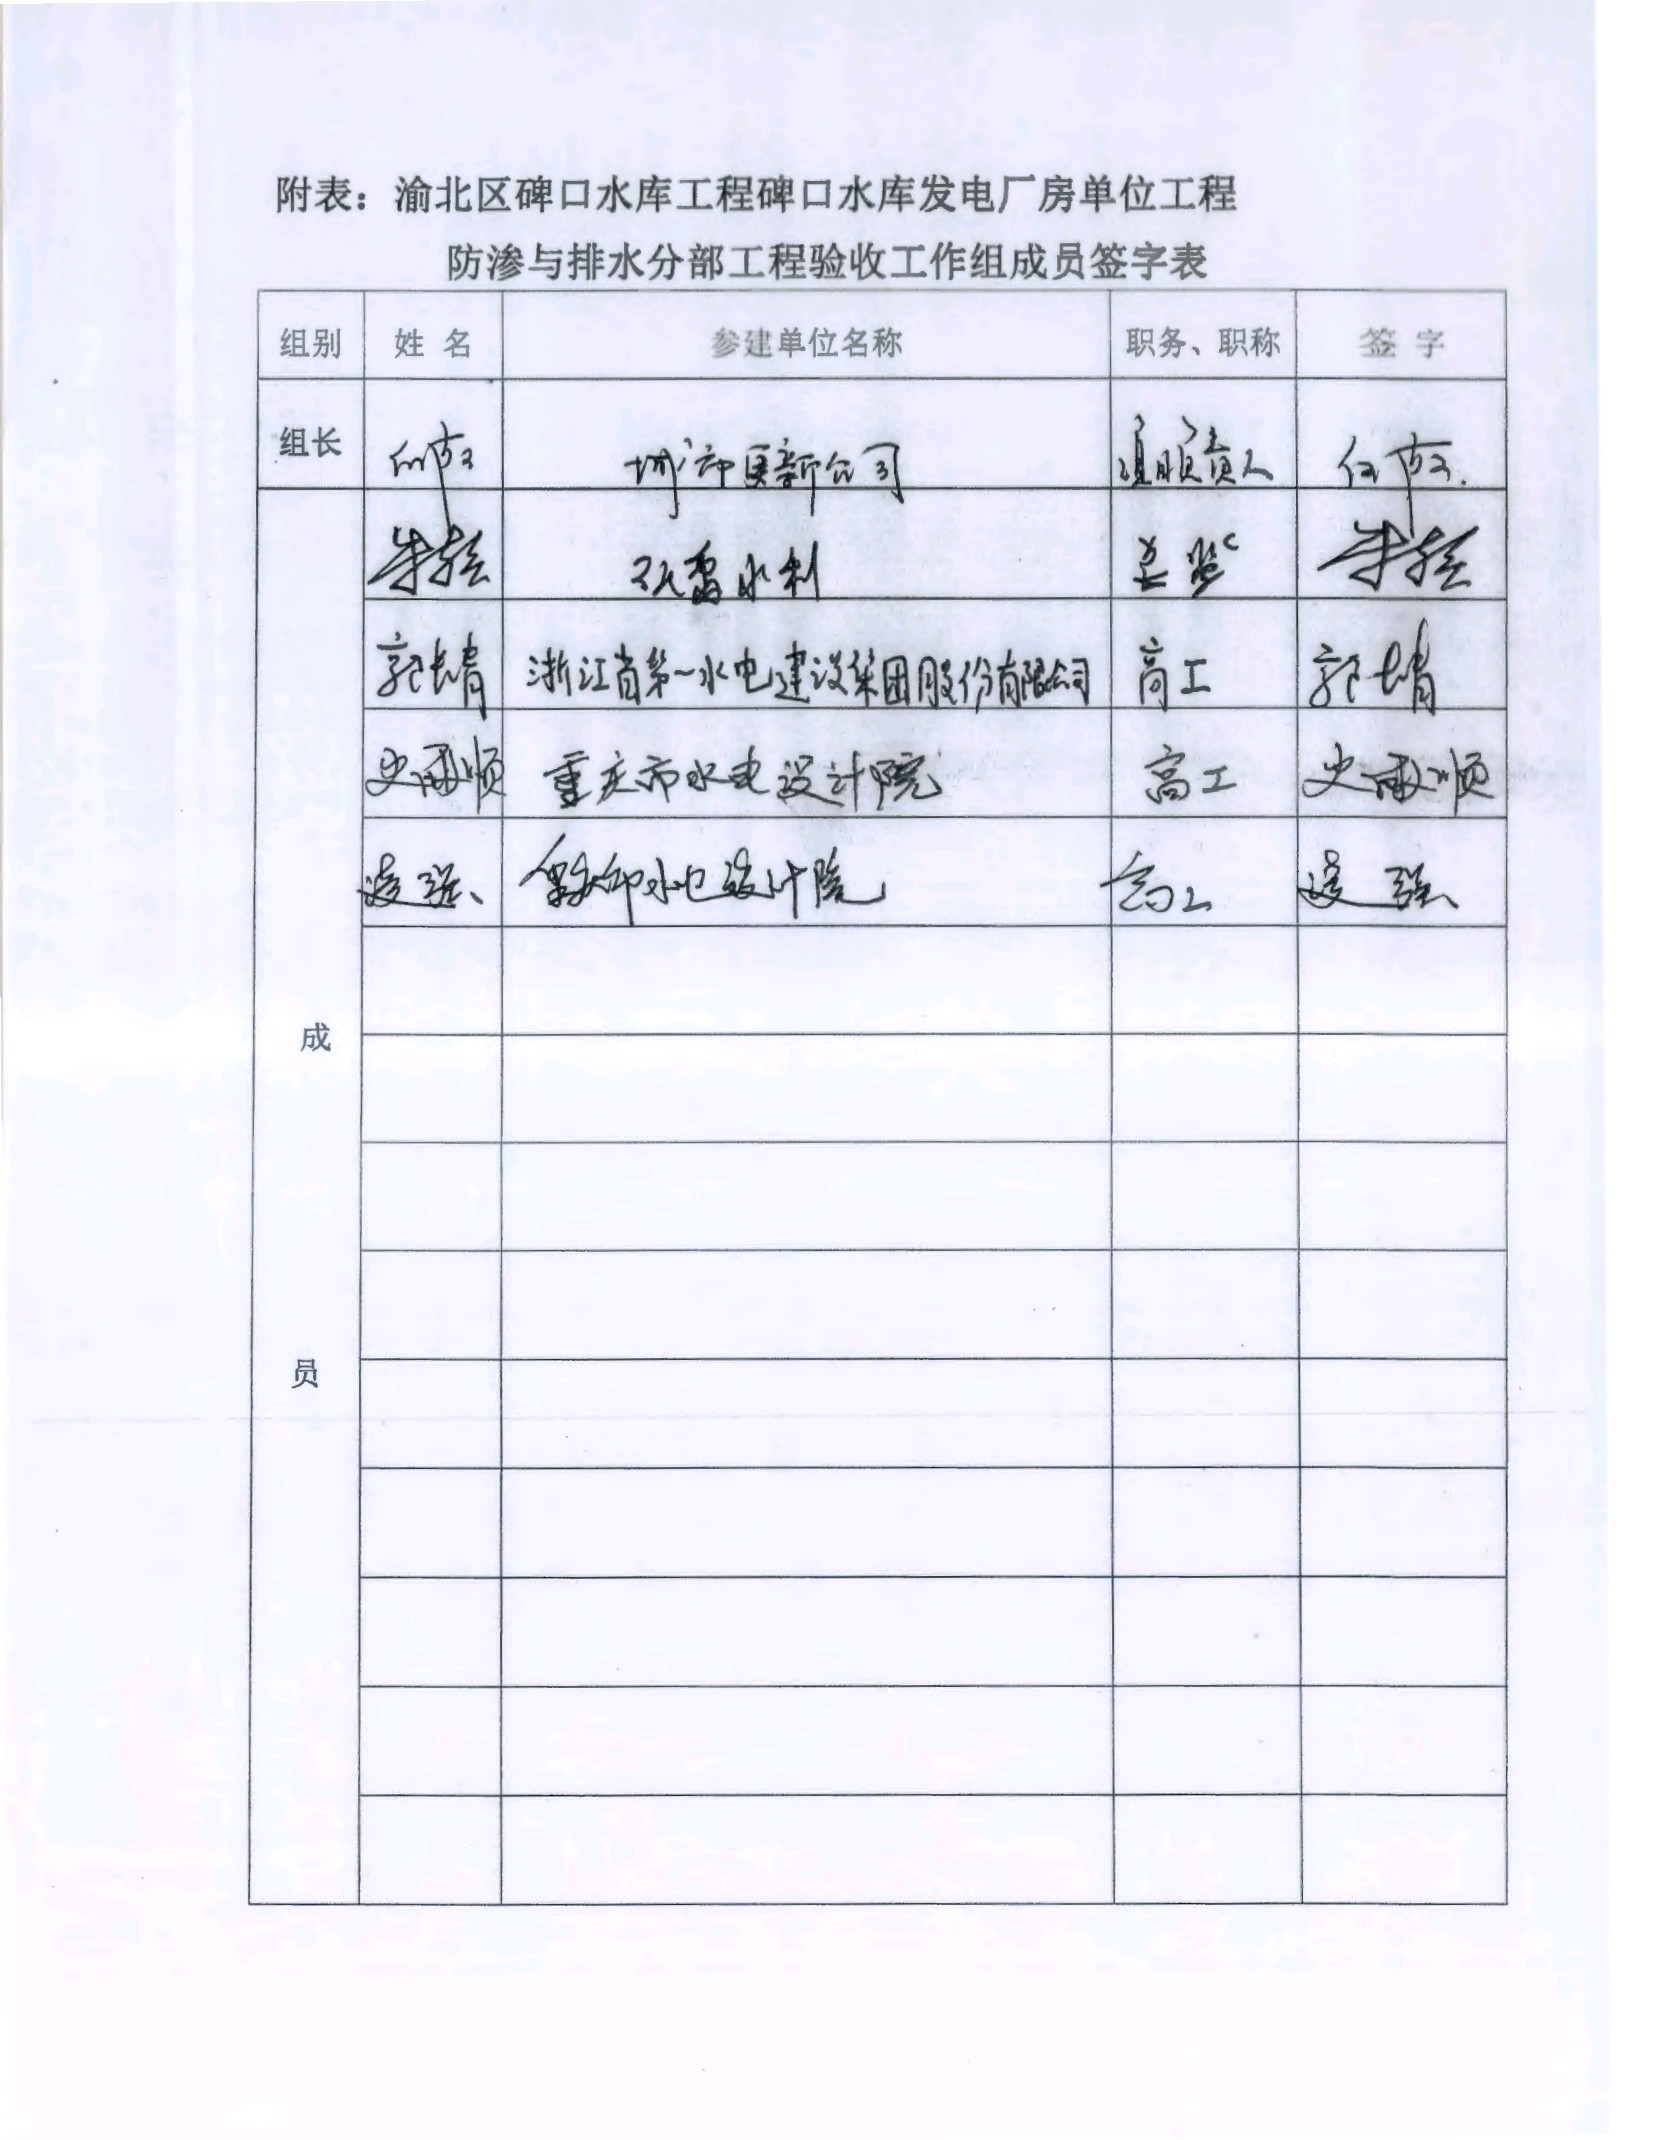 附表：渝北区碑口水库工程碑口水库发电厂房单位工程
防渗与排水分部工程验收工作组成员签字表
组别 姓 名 参建单位名称 职务、职称 签 字
组长 城市更新公司 项目负责人
水利 总监
郭长青 浙江省第一水电建设集团股份有限公司 高工 郭长青
史 顺 重庆市水电设计院 高工 史 顺
凌强 重庆市水电设计院 高工 凌强
成
员